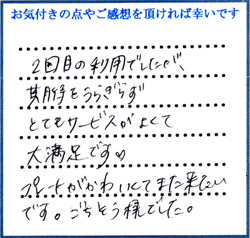 お気付きの点やご感想を頂ければ幸いです
2回目の利用でしたが、
期待をうらぎらず
とてもサービスがよくて
大満足です♡
プレートがかわいくてまた来たい
です。ごちそう様でした。